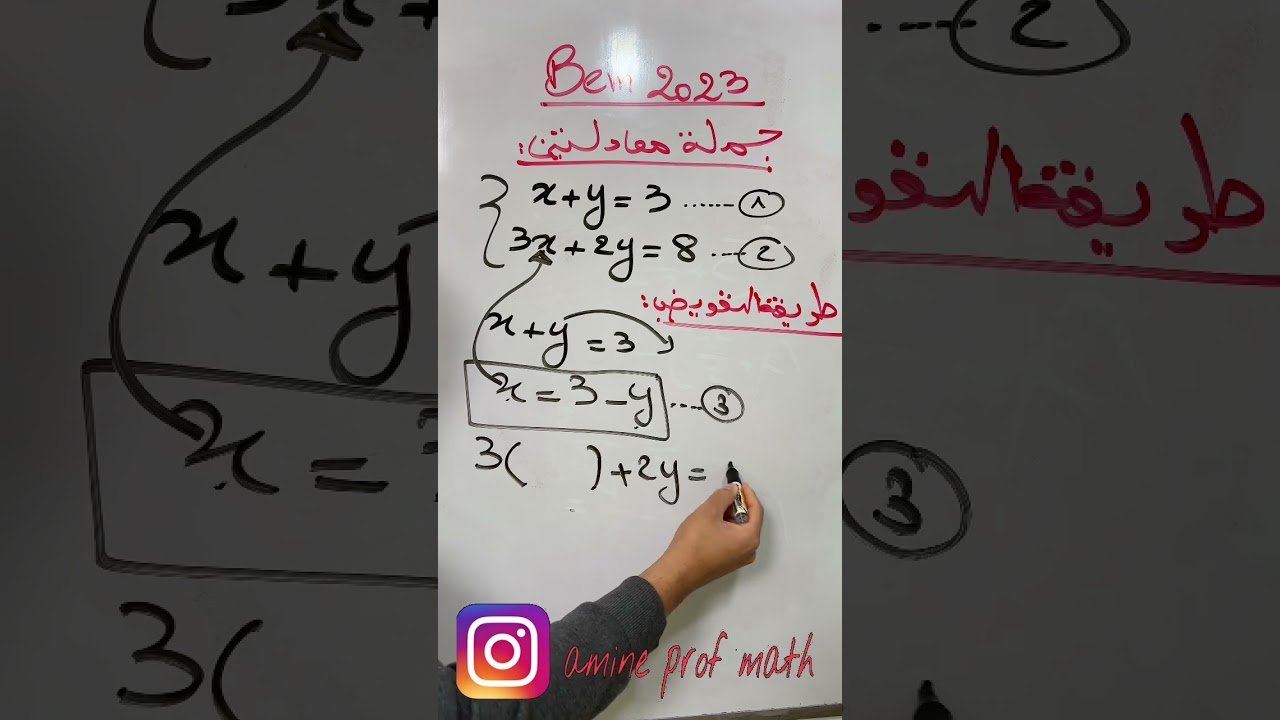 Bem 2023
جملة معادلتين:
x+y=3 ------ 1
3x+2y=8 ---- 2
طريقة التعويض:
x+y=3
x=3-y ---- 3
3( )+2y=
amine prof math